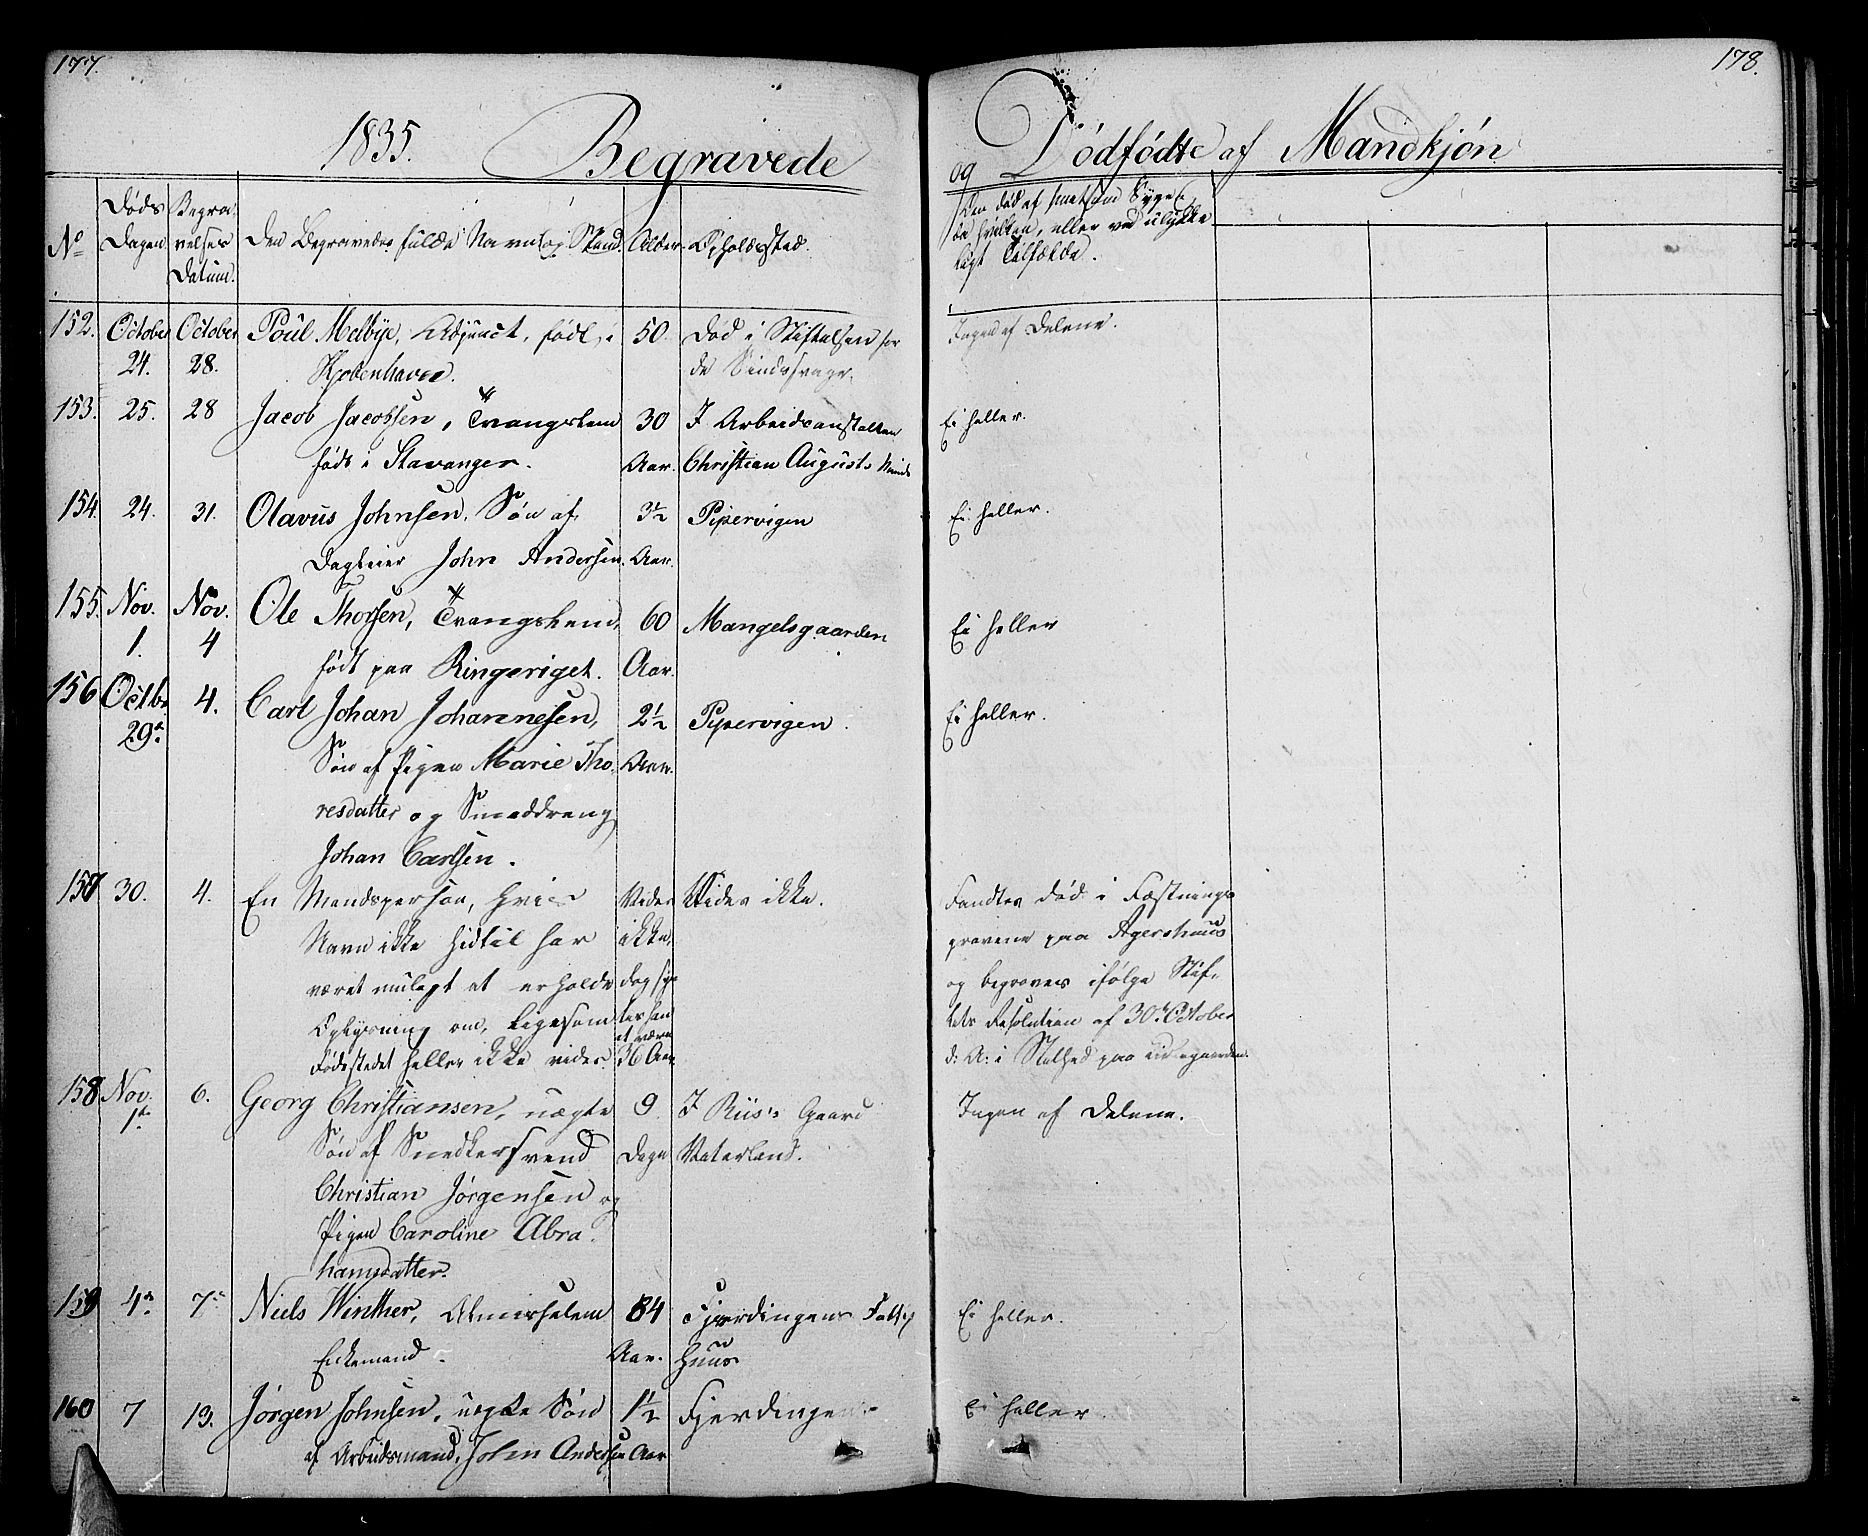 177.
178.
1835. Begravede og Dødfødte af Mandkjøn
No
Døds Dagen
Begravelses Datum.
Den Begravedes fulde Navn og Stand.
Alder.
Opholdssted.
Om død af smitsom Syge,
da hvilken, eller ved ulykke
ligt Tilfælde.
152. October 24. October 28. Poul Melbye, Adjunct, født i 50. Død i Stiftelsen for Ingen af Delene.
Kjøbenhavn. de Sindssvage.
153. 25. 28 Jacob Jacobsen, Tvangslem 30 I Arbeidsanstalten Ei heller.
født i Stavanger. Aar. Christian Augusts Minde
154. 24. 31. Olavus Johnsen, Søn af 3½ Pipervigen Ei heller.
Dagleier John Andersen. Aar.
155. Nov. 1. Nov. 4 Ole Thorsen, Tvangslem, 60 Mangelsgaarden Ei heller
født paa Ringeriget. Aar.
156 Octbr 29. 4. Carl Johan Johannesen, 2½ Pipervigen. Ei heller.
Søn af Pigen Marie Tho- Aar.
resdatter og Smeddreng
Johan Carlsen.
157 30. 4. En Mandsperson, hvis Vides Vides ikke. Fandtes død i Fæstnings
Navn ikke hidtil har ikke, gravene paa Agershuus
været muligt at erholde dog sy- og begraves ifølge Stif-
Oplysning om, ligesom tes han tets Resolution af 30. October
Fødestedet heller ikke vides. at være 36 Aar d: A: i Stilhed paa Kirkegaarden.
158 Nov. 1. 6. Georg Christiansen, uægte 9 I Riis's Gaard Ingen af Delene.
Søn af Snedkersvend Dage Vaterland.
Christian Jørgensen og
Pigen Caroline Abra-
hamsdatter.
159 4. 7. Niels Winther, Almisselem 84 Fjerdingens Fattig Ei heller.
Enkemand. Aar. Huus
160 7 13. Jørgen Johnsen, uægte Søn 1½ Fjerdingen. Ei heller.
af Arbeidsmand, John Andersen Aar